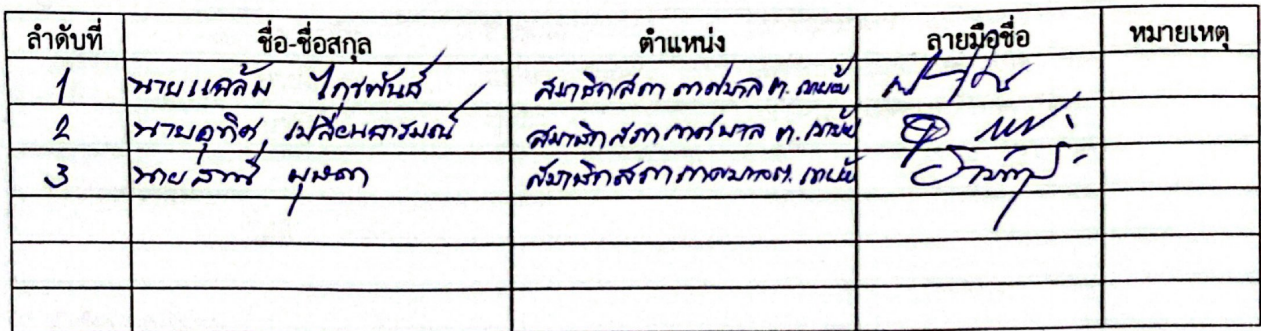 ลำดับที่ ชื่อ-ชื่อสกุล ตำแหน่ง ลายมือชื่อ หมายเหตุ
1 นายแฉล้ม ไกรพันธ์ สมาชิกสภาเทศบาลต.
2 นายอุทิศ เปลี่ยนอารมณ์ สมาชิกสภาเทศบาล ต.
3 นาย บุษดา สมาชิกสภาเทศบาลต.